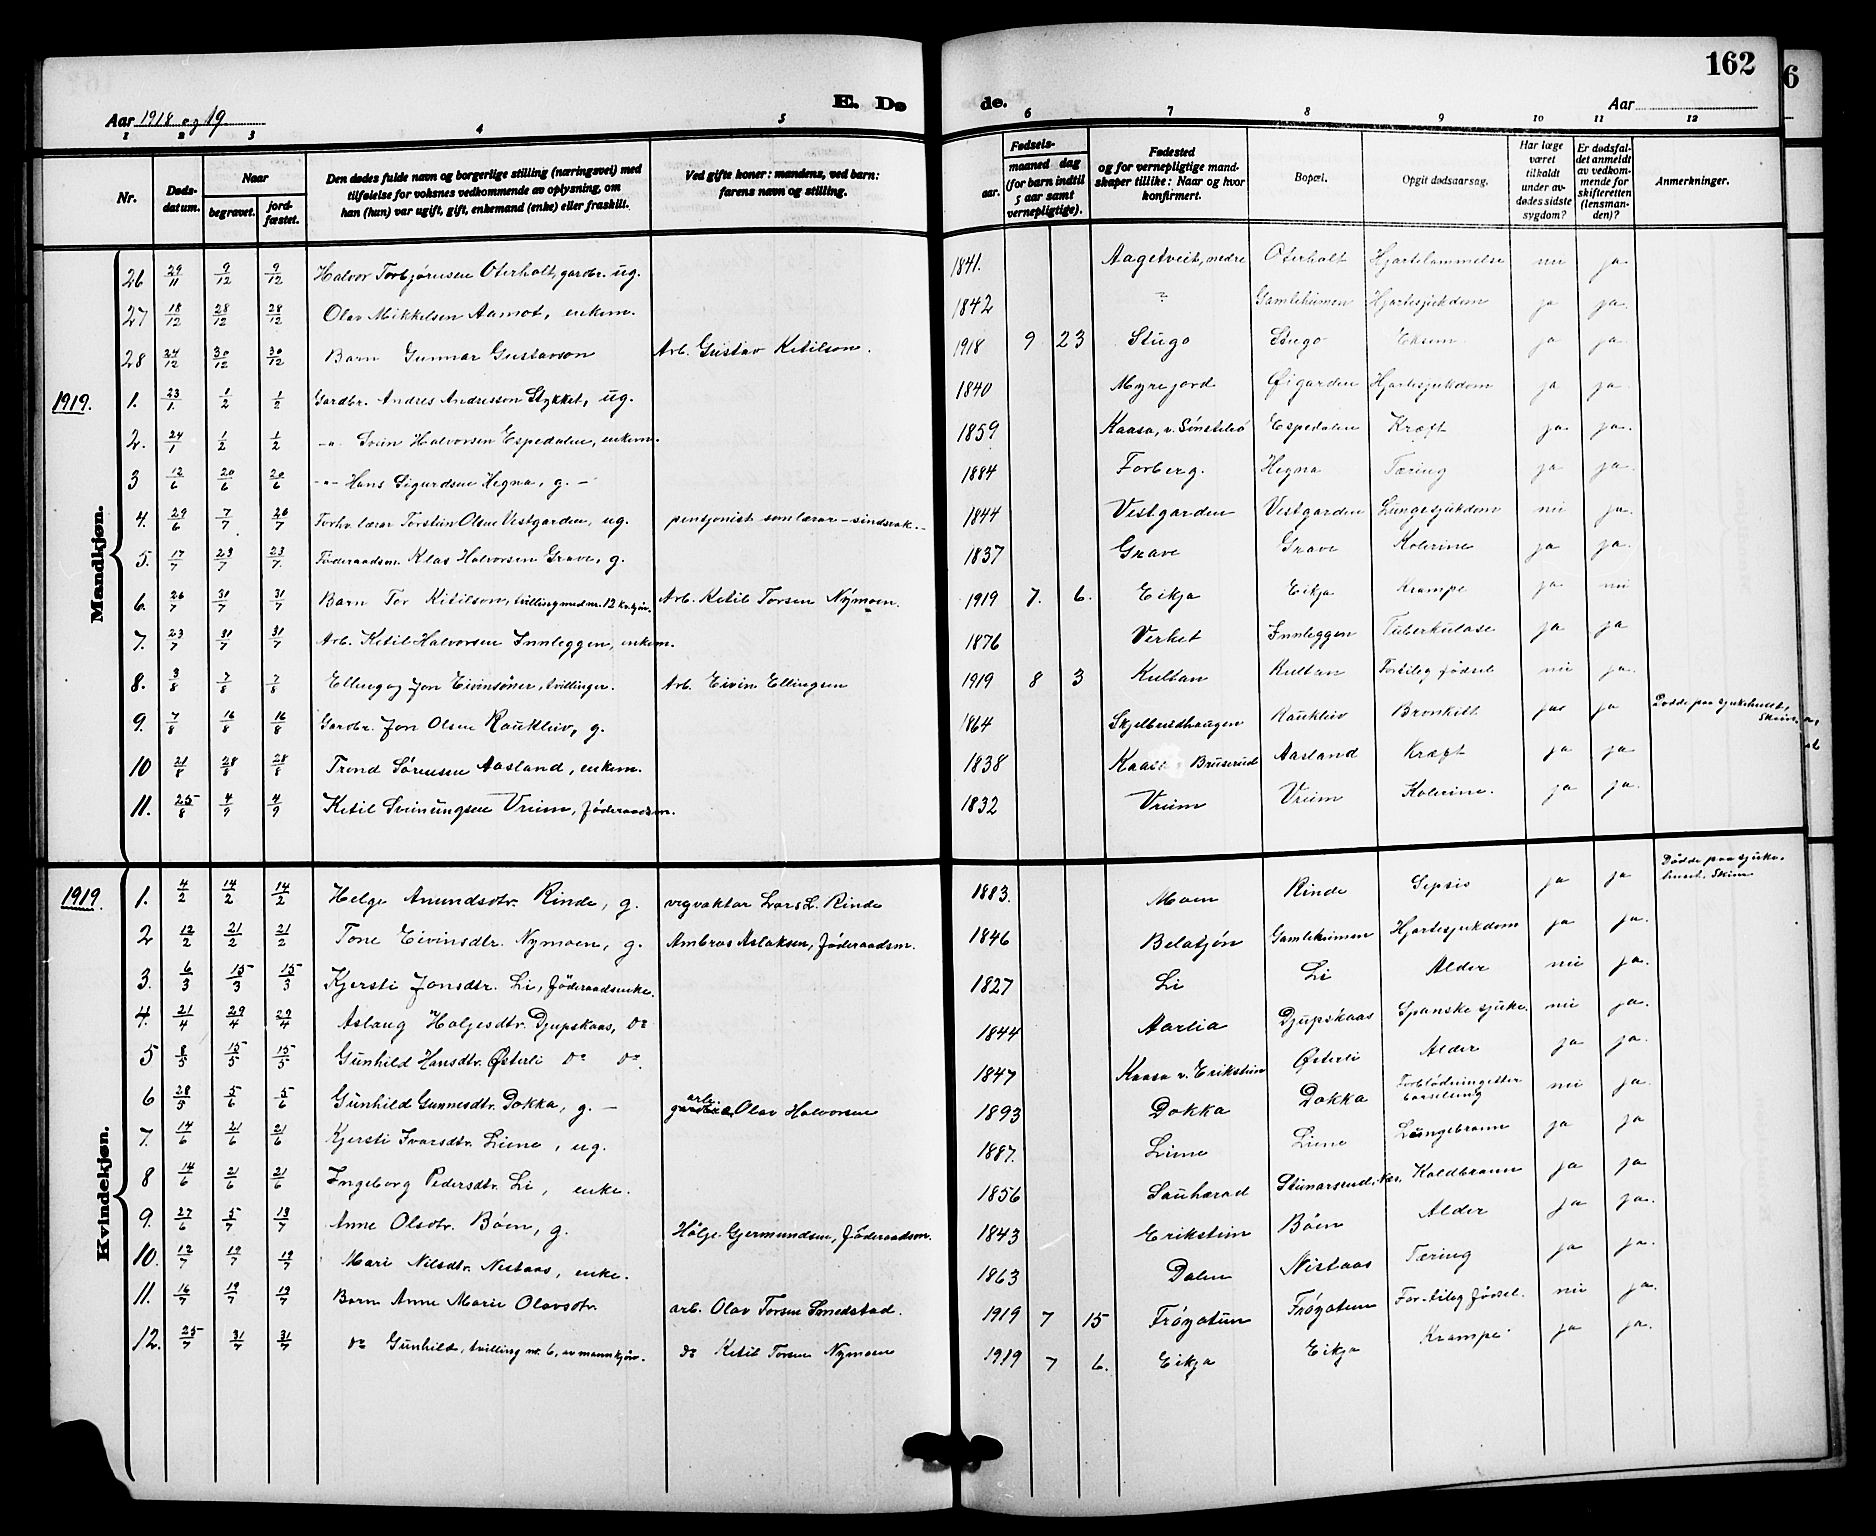 162
6
E. Dø de.
Aar 1918 og 19.
Aar
1 2 3 4 5 6 7 8 9 10 11 12
Nr. | Døds-datum. | Naar begravet. | jord-fæstet. | Den dødes fulde navn og borgerlige stilling (næringsvei) med tilføielse for voksnes vedkommende av oplysning, om han (hun) var ugift, gift, enkemand (enke) eller fraskilt. | Ved gifte koner: mandens, ved barn: farens navn og stilling. | Fødsels- aar. | maaned | dag (for barn indtil 5 aar samt vernepligtige). | Fødested og for vernepligtige mand-skaper tillike: Naar og hvor konfirmert. | Bopæl. | Opgit dødsaarsag. | Har læge været tilkaldt under av-dødes sidste sygdom? | Er dødsfal-det anmeldt av vedkom-mende for skifteretten (lensman-den)? | Anmerkninger.
Mandkjøn.
26 29/11 9/12 9/12 Halvor Torbjørnsen Oterholt, gardbr. ug. 1841. Aagetveit, nedre Oterholt Hjartelammelse nei ja
27 18/12 28/12 28/12 Olav Mikkelsen Aamot, enkem. 1842 ? Gamlehiimen Hjartesjukdom ja ja.
28 24/12 30/12 30/12 Barn Gunnar Gustavson Arb. Gustav Ketilson. 1918 9 23 Stugo Stugo Eksem ja ja.
1919. 1. 23/1. 1/2 1/2 Gardbr. Andres Andresson Stykket, ug. 1840 Myrejord Øigarden Hjartesjukdom ja ja.
2. 24/1 1/2 1/2 -"- Svein Halvorsen Espedalen, enkem. 1859 Kaasa, v. Sønstebø Espedalen Kræft ja ja.
3 12/6 20/6 20/6 -"- Hans Sigurdsen Hegna, g. - 1884 Forberg. Hegna Tæring ja ja.
4. 29/6 7/7 26/7 Forhv. lærar Torstein Olsen Vestgarden, ug. pensjonist som lærar - sindsvak. - 1844 Vestgarden Vestgarden Lungesjukdom nei ja.
5. 17/7 23/7 23/7. Føderaadsm. Klas Halvorsen Grave, g. 1837 Grave Grave Kolerine ja ja.
6. 26/7 31/7 31/7 Barn Tor Kitilson, tvilling med nr. 12 kv.kjøn. Arb. Ketil Torsen Nymoen. 1919 7. 6. Eikja Eikja Krampe ja nei
7. 23/7 31/7 31/7 Arb. Ketil Halvorsen Innleggen, enkem. 1876 Verket Innleggen Tuberkulose ja ja
8. 3/8 7/8 7/8 Elling og Jon Eivinsøner, tvillinger. Arb. Eivin Ellingsen 1919 8 3 Kultan Kultan Fortileg fødsel nei ja.
9. 7/8 16/8 16/8 Gardbr. Jon Olsen Raukleiv, g. 1864 Skjelbreidhaugen Raukleiv Bronkitt jaa ja Dødde paa sjukehuset, Skien.
10 21/8 28/8 28/8 Trond Sørensen Aasland, enkem. 1838 Kaasa, Bruserud Aasland Kræft ja ja
11. 25/8 4/9 4/9 Ketil Sveinungsen Vreim, føderaadsm. 1832 Vreim Vreim Kolerine. ja ja.
Kvindekjøn.
1919. 1. 4/2 14/2 14/2 Helge Amundsdtr. Rinde, g. vegvaktar Lars L. Rinde 1883. Moen Rinde Sepsis ja ja Dødde paa sjuke-huset. Skien
2 12/2 21/2 21/2 Tone Eivinsdtr. Nymoen, g. Ambros Aslaksen, føderaadsm. 1846 Belatjøn Gamlehiimen Hjartesjukdom ja ja.
3. 6/3 15/3 15/3 Kjersti Jonsdtr. Li, føderaadsenke. 1827 Li Li Alder nei ja.
4. 21/4 29/4 29/4 Aslaug Holjesdtr. Djupskaas, do 1844 Aarlia Djupskaas Spanske sjuke. nei ja
5 8/5 15/5 15/5 Gunhild Hansdtr. Østerli do do. 1847 Kaasa v. Erikstein Østerli Alder ja ja.
6 28/5 5/6 5/6 Gunhild Gunnesdtr. Dokka, g. - arb. Olav Halvorsen 1893 Dokka Dokka Forblødning etter barselseng nei ja.
7. 14/6 21/6 21/6 Kjersti Ivarsdtr. Leime, ug. 1887. Leime Leime Lungebrann ja ja
8 14/6 21/6 21/6 Ingeborg Pedersdtr. Li, enke. 1856 Sauherad Koldbrann ja ja
9. 27/6 5/7 13/7 Anne Olsdtr. Bøen, g. Holje Gjermundsen, føderaadsm. 1843 Erikstein Bøen Alder ja ja.
10. 12/7 19/7 19/7 Mari Nilsdtr. Nistaas, enke. 1863 Dalen Nistaas Tæring ja ja.
11. 16/7 19/7 19/7 Barn Anne Marie Olavsdtr. arb. Olav Torsen Smedstad. 1919 7 15 Frøyatun Frøyatun Fortileg fødsel. nei ja.
12. 25/7 31/7 31/7 do Gunhild, tvilling nr. 6, av mannkjøn. do Ketil Torsen Nymoen 1919 7 6. Eikja Eikja Krampe ja ja.